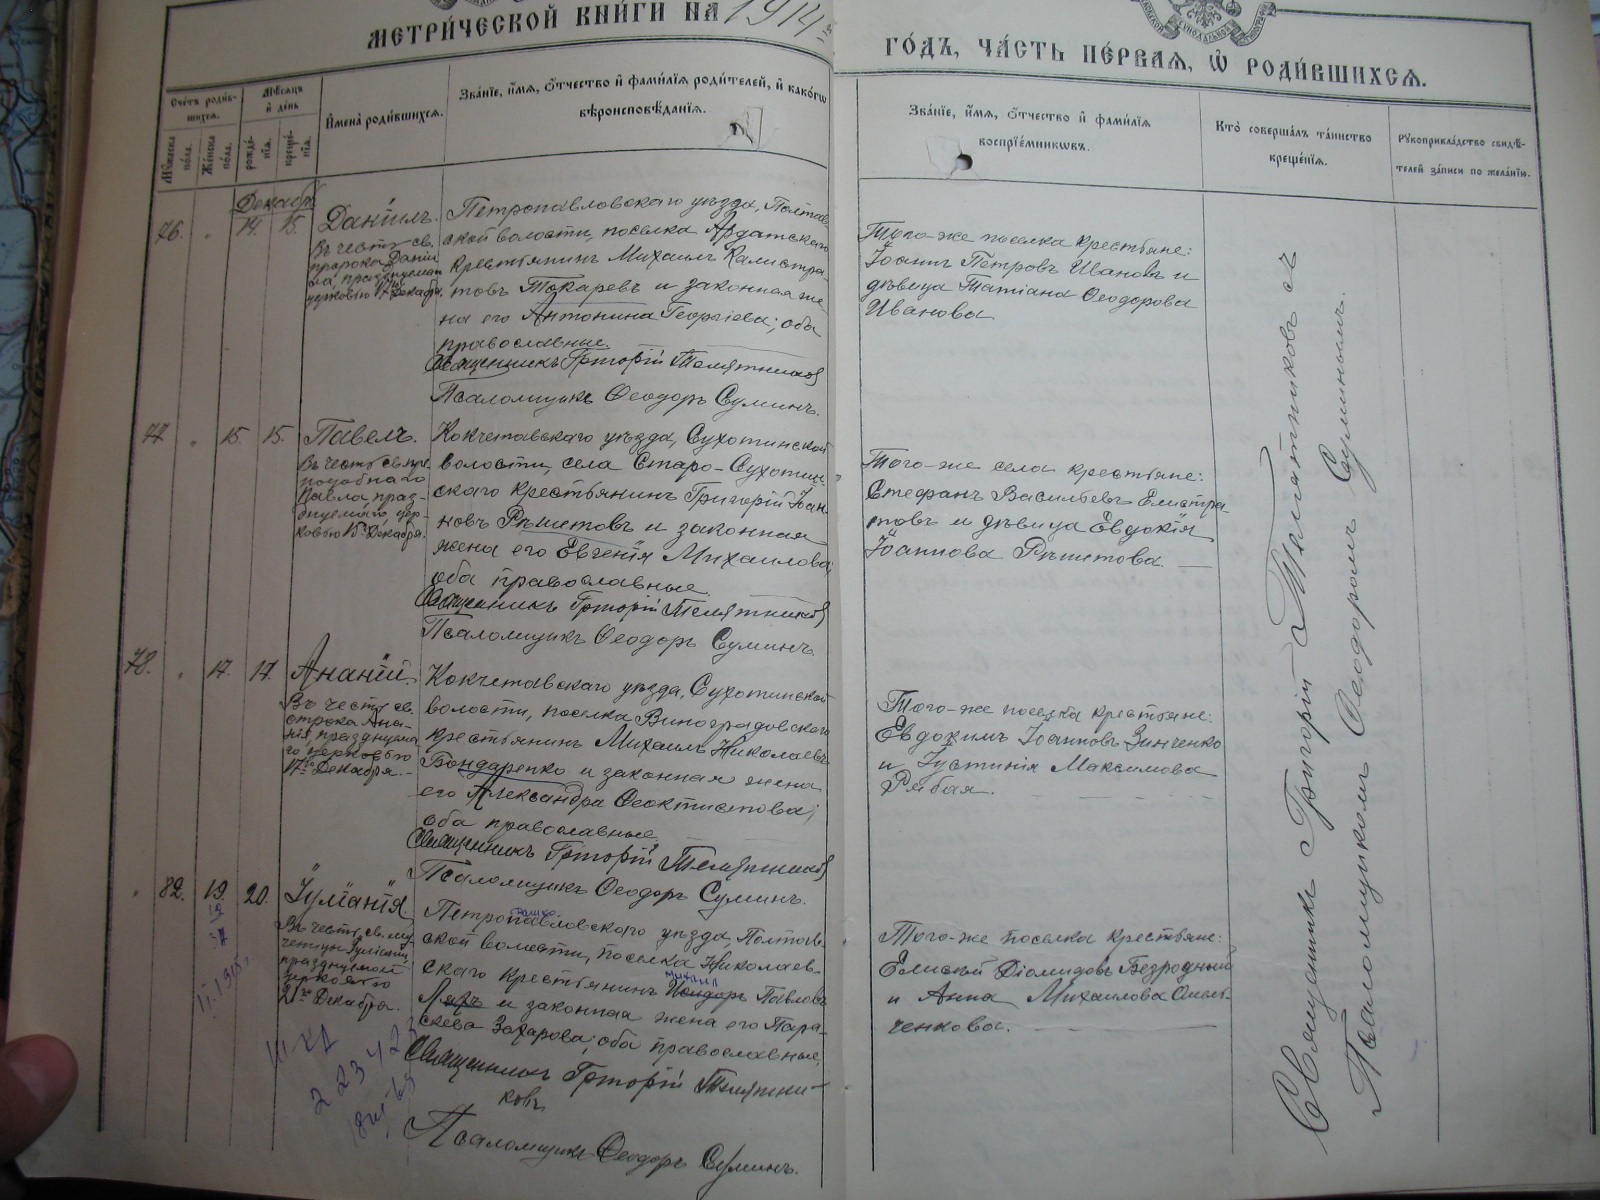 МЕТРИ́ЧЕСКОЙ КНИ́ГИ НА 1914
ГО́ДЪ, ЧА́СТЬ ПЕ́РВАЯ, Ѿ РОДИ́ВШИХСЯ.
Сче́тъ роди́в-
шихся.
Мѣ́сяцъ
и̑ де́нь
Му́жеска
по́ла.
Же́нска
по́ла.
рожде́-
нїя.
креще́-
нїя.
И̑мена̀ роди́вшихся.
Зва́нїе, и҆́мя, Ѻ҆́тчество и҆ фами́лїя роди́телей, и҆ како́гѡ
вѣроисповѣ́данїя.
Зва́нїе, и҆́мя, Ѻ҆́тчество и҆ фами́лїя
воспрїе́мникѡвъ.
Кто̀ соверша́лъ та́инство
креще́нїя.
Рꙋкоприкла́дство свидѣ́-
телей за́писи по жела́нїю.
Декабр
76. " 14. 15. Данїилъ.
Въ честь св.
пророка Данїи
ла, празднуемаго
церковью 17го Декабря.
Петропавловскаго уѣзда, Полтав
ской волости, поселка Ардатскаго
крестьянинъ Михаилъ Калистра
товъ Токаревъ и законная же
на его Антонина Георгіева; оба
православные.
Священникъ Григорій Телятников
Псаломщикъ Ѳеодоръ Суминъ.
Того-же поселка крестьяне:
Іоаннъ Петровъ Ивановъ и
дѣвица Татіана Ѳеодорова
Иванова
77. " 15. 15. Павелъ.
Въ честь св. пре
подобнаго
Павла, праз-
днуемаго цер-
ковью 15го Декабря.
Кокчетавскаго уѣзда, Сухотинской
волости, села Старо-Сухотин-
скаго крестьянинъ Григорій Іоан
новъ Рѣшетовъ и законная
жена его Евгенія Михаилова
оба православные.
Священникъ Григорій Телятников
Псаломщикъ Ѳеодоръ Суминъ.
Того-же села крестьяне:
Стефанъ Васильевъ Елистра
товъ и дѣвица Евдокія
Іоаннова Рѣшетова.
78. " 17. 17. Ананїй.
Въ честь св.
отрока Ана-
нія празднуема
го церковью
17го Декабря.
Кокчетавскаго уѣзда, Сухотинской
волости, поселка Виноградовскаго
крестьянинъ Михаилъ Николаевъ
Бондаренко и законная жена
его Александра Ѳеоктистова;
оба православные.
Священникъ Григорій Телятников
Псаломщикъ Ѳеодоръ Суминъ.
Того-же поселка крестьяне:
Евдокимъ Іоанновъ Зинченко
и Іустинія Максимова
Рябая.
" 82. 19. 20. Іуліанія
Въ честь св. му-
ченицы Іуліаніи
празднуемой
церковью
21го Декабря.
Петропавловскаго уѣзда, Полтав-
ской волости, поселка Николаев-
скаго крестьянинъ Исидоръ Павловъ
михаил
и законная жена его Пара-
скева Захарова; оба православные,
Священникъ Григорій Телятни-
ковъ
Псаломщикъ Ѳеодоръ Суминъ.
Того-же поселка крестьяне:
Елисей Діомидовъ Безродный
и Анна Михаилова Омель-
ченкова.
Священникъ Григорій Телятниковъ съ
Псаломщикомъ Ѳеодоромъ Суминымъ.